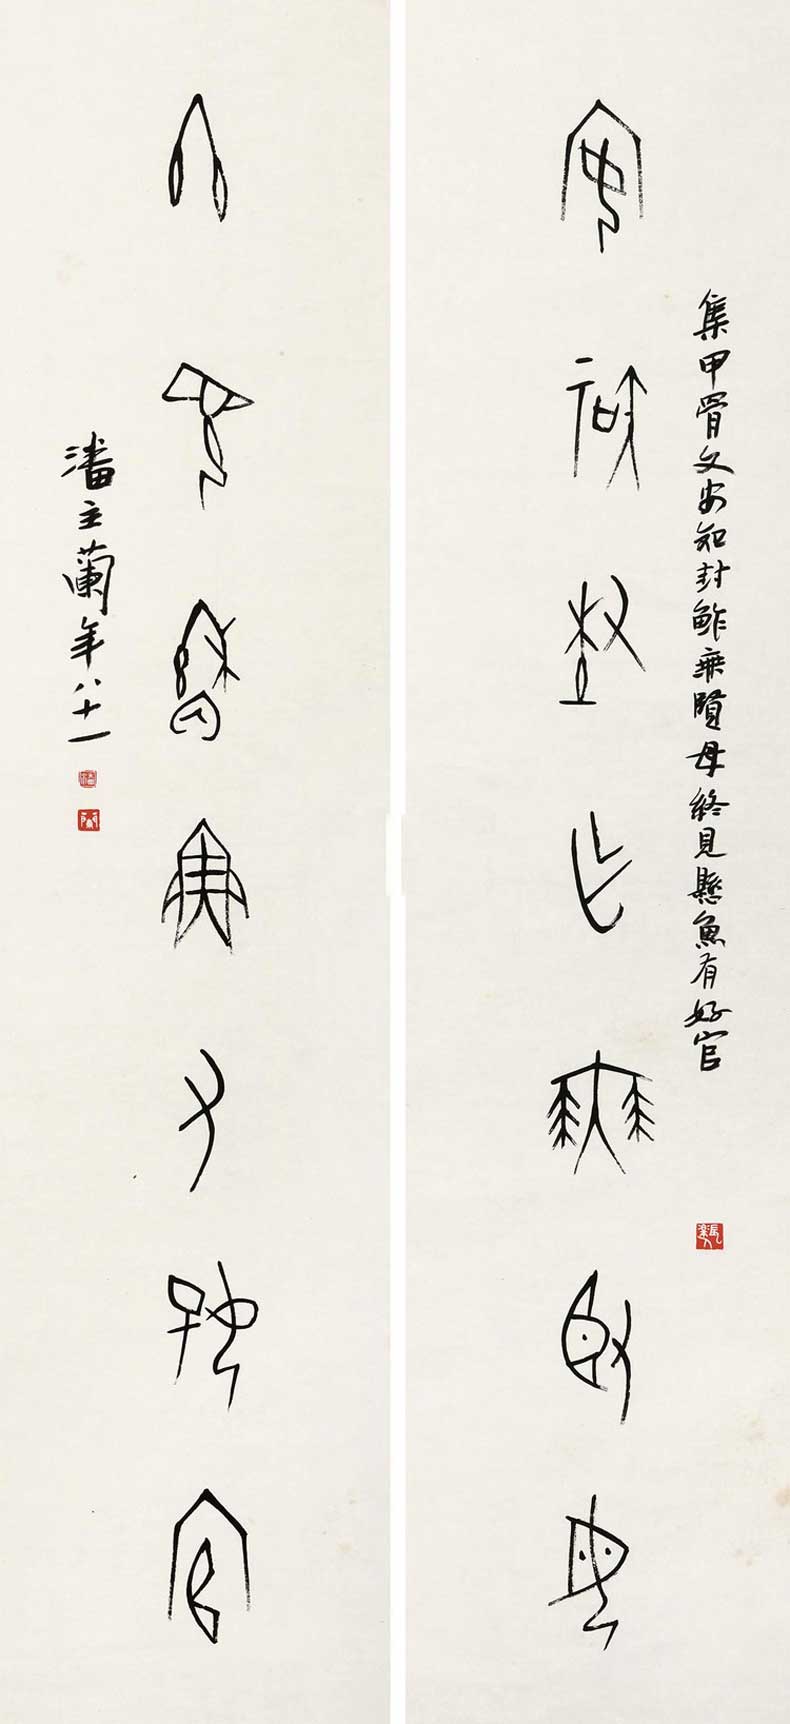 集甲骨文安知封鮓無賢母終見懸魚有好官
安知封乍無賢母
終見懸魚有好官
潘主蘭年八十一